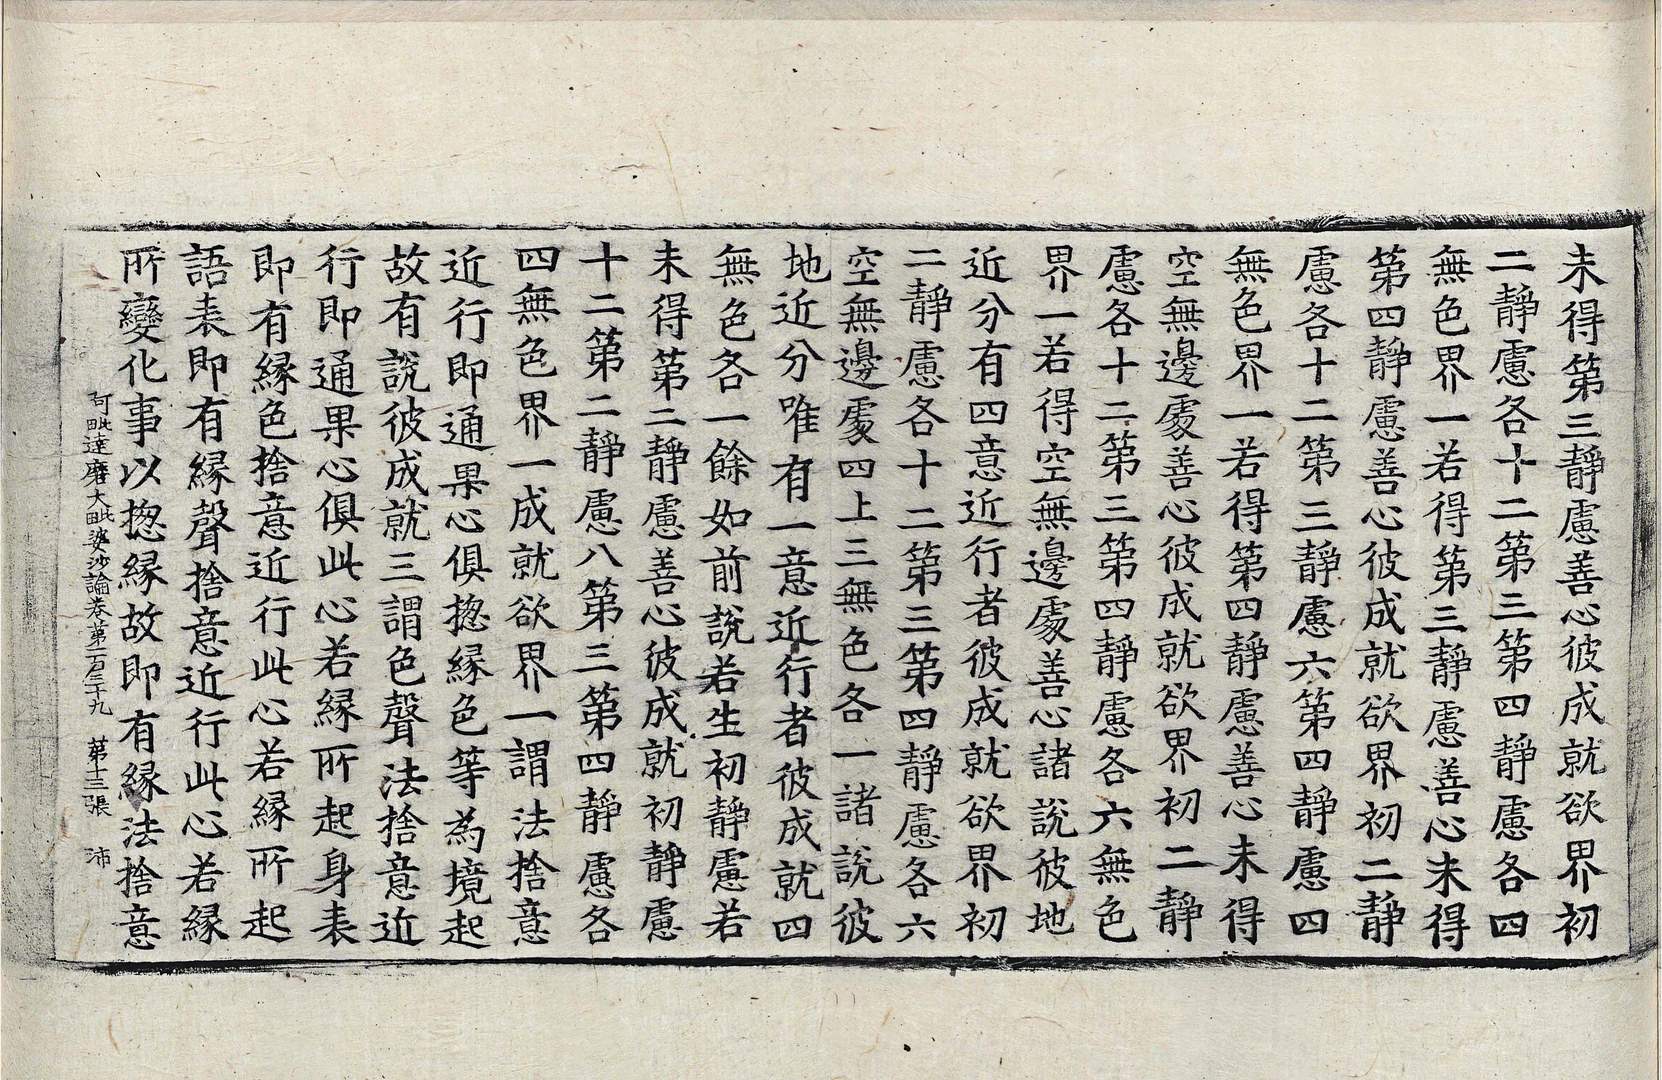 未得第三静慮善心彼成就欲界初
二静慮各十二第三第四静慮各四
無色界一若得第三静慮善心未得
第四静慮善心彼成就欲界初二静
慮各十二第三静慮六第四静慮四
無色界一若得第四静慮善心未得
空無邊處善心彼成就欲界初二静
慮各十二第三第四静慮各六無色
界一若得空無邊處善心諸說彼地
近分有四意近行者彼成就欲界初
二静慮各十二第三第四静慮各六
空無邊處四上三無色各一諸說彼
地近分唯有一意近行者彼成就四
無色各一餘如前說若生初静慮若
未得第二静慮善心彼成就初静慮
十二第二静慮八第三第四静慮各
四無色界一成就欲界一謂法捨意
近行即通果心俱揔緣色等為境起
故有說彼成就三謂色聲法捨意近
行即通果心俱此心若緣所起身表
即有緣色捨意近行此心若緣所起
語表即有緣聲捨意近行此心若緣
所變化事以揔緣故即有緣法捨意
阿毗達磨大毗婆沙論卷第一百三十九 第十三張 沛